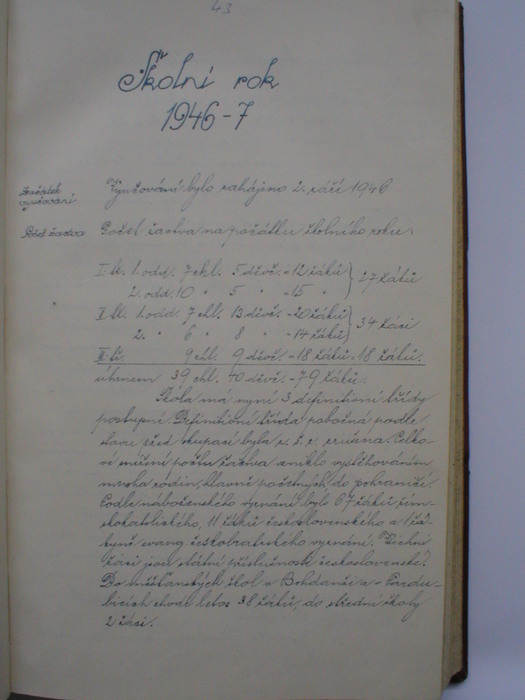 43
Školní rok
1946-7
Začátek
vyučování
Vyučování bylo zahájeno 2. září 1946
Počet žactva
Počet žactva na počátku školního roku:
I. tř. 1. odd. 7 chl. 5 děvč. - 12 žáků } 27 žáků
2. odd. 10 " 5 " - 15 "
II. tř. 1. odd. 7 chl. 13 děvč. - 20 žáků } 34 žáci
2. " 6 " 8 " - 14 žáků
III. tř. 9 chl. 9 děvč. - 18 žáků. 18 žáků.
úhrnem 39 chl. 40 děvč. - 79 žáků.
Škola má nyní 3 definitivní třídy
postupné. Definitivní třída pobočná podle
stavu před okupací byla z. š. r. zrušena. Celko-
vé snížení počtu žactva vzniklo vystěhováním
mnoha rodin, hlavně početných do pohraničí.
Podle náboženského vyznání bylo 67 žáků řím-
skokatolického, 11 žáků československého a 1 žá-
kyně evang. českobratrského vyznání. Všichni
žáci jsou státní příslušnosti československé.
Do měšťanských škol v Bohdanči a v Pardu-
bicích chodí letos 38 žáků, do střední školy
2 žáci.